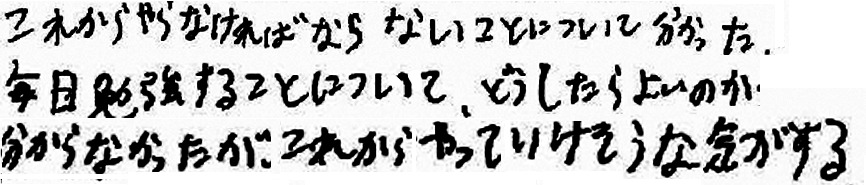 これからやらなければならないことについて分かった.
毎日勉強することについて、どうしたらよいのか
分からなかったが、これからやっていけそうな気がする